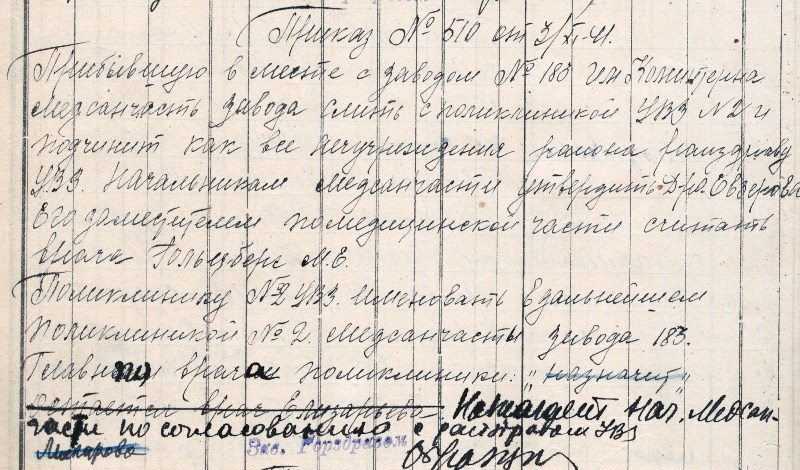 Приказ № 510 от 3/XI-41.
Прибывшую в месте с заводом № 183 им Коминтерна
Медсанчасть завода слить с поликлиникой УВЗ № 2 и
подчинит как все лечучреждения района
УВЗ. Начальникам медсанчасти утвердить Д-ра. Евзерова
Его заместителем помедицинской части считать
врача Гольцберг М.Е.
Поликлинику № 2 УВЗ. именовать вдальнейшем
поликлиникой № 2. Медсанчасты завода 183.
Главного врача поликлиники: "назначит"
остается врач Елизарьева. Назначает нач. Медсан-
части по согласованию с УВЗ
Зав. Горздравом